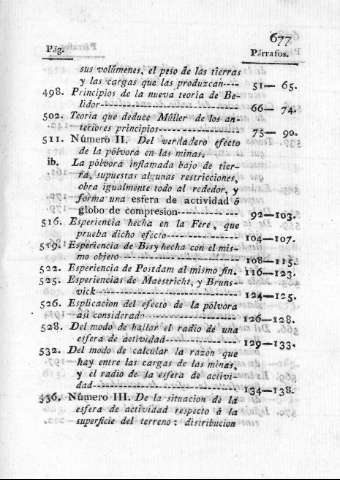 677
Pág. Párrafos.
sus volúmenes, el peso de las tierras
y las cargas que las produzcan---- 51— 65.
498. Principios de la nueva teoría de Be-
lidor---------------------------- 66— 74.
502. Teoría que deduce Müller de los an-
teriores principios---------------- 75— 90.
511. Número II. Del verdadero efecto
de la pólvora en las minas.
ib. La pólvora inflamada bajo de tier-
ra, supuestas algunas restricciones,
obra igualmente todo al rededor, y
forma una esfera de actividad ó
globo de compresion------------- 92—103.
516. Esperiencia hecha en la Fere, que
prueba dicho efecto-------------- 104—107.
519. Esperiencia de Bisy hecha con el mis-
mo objeto----------------------- 108—115.
522. Esperiencia de Postdam al mismo fin. 116—123.
525. Esperiencias de Maestricht, y Bruns-
vick---------------------------- 124—125.
526. Esplicacion del efecto de la pólvora
asi considerado------------------ 126—128.
528. Del modo de hallar el radio de una
esfera de actividad--------------- 129—133.
532. Del modo de calcular la razon que
hay entre las cargas de las minas,
y el radio de la esfera de activi-
dad---------------------------- 134—138.
536. Número III. De la situacion de la
esfera de actividad respecto á la
superficie del terreno: distribucion